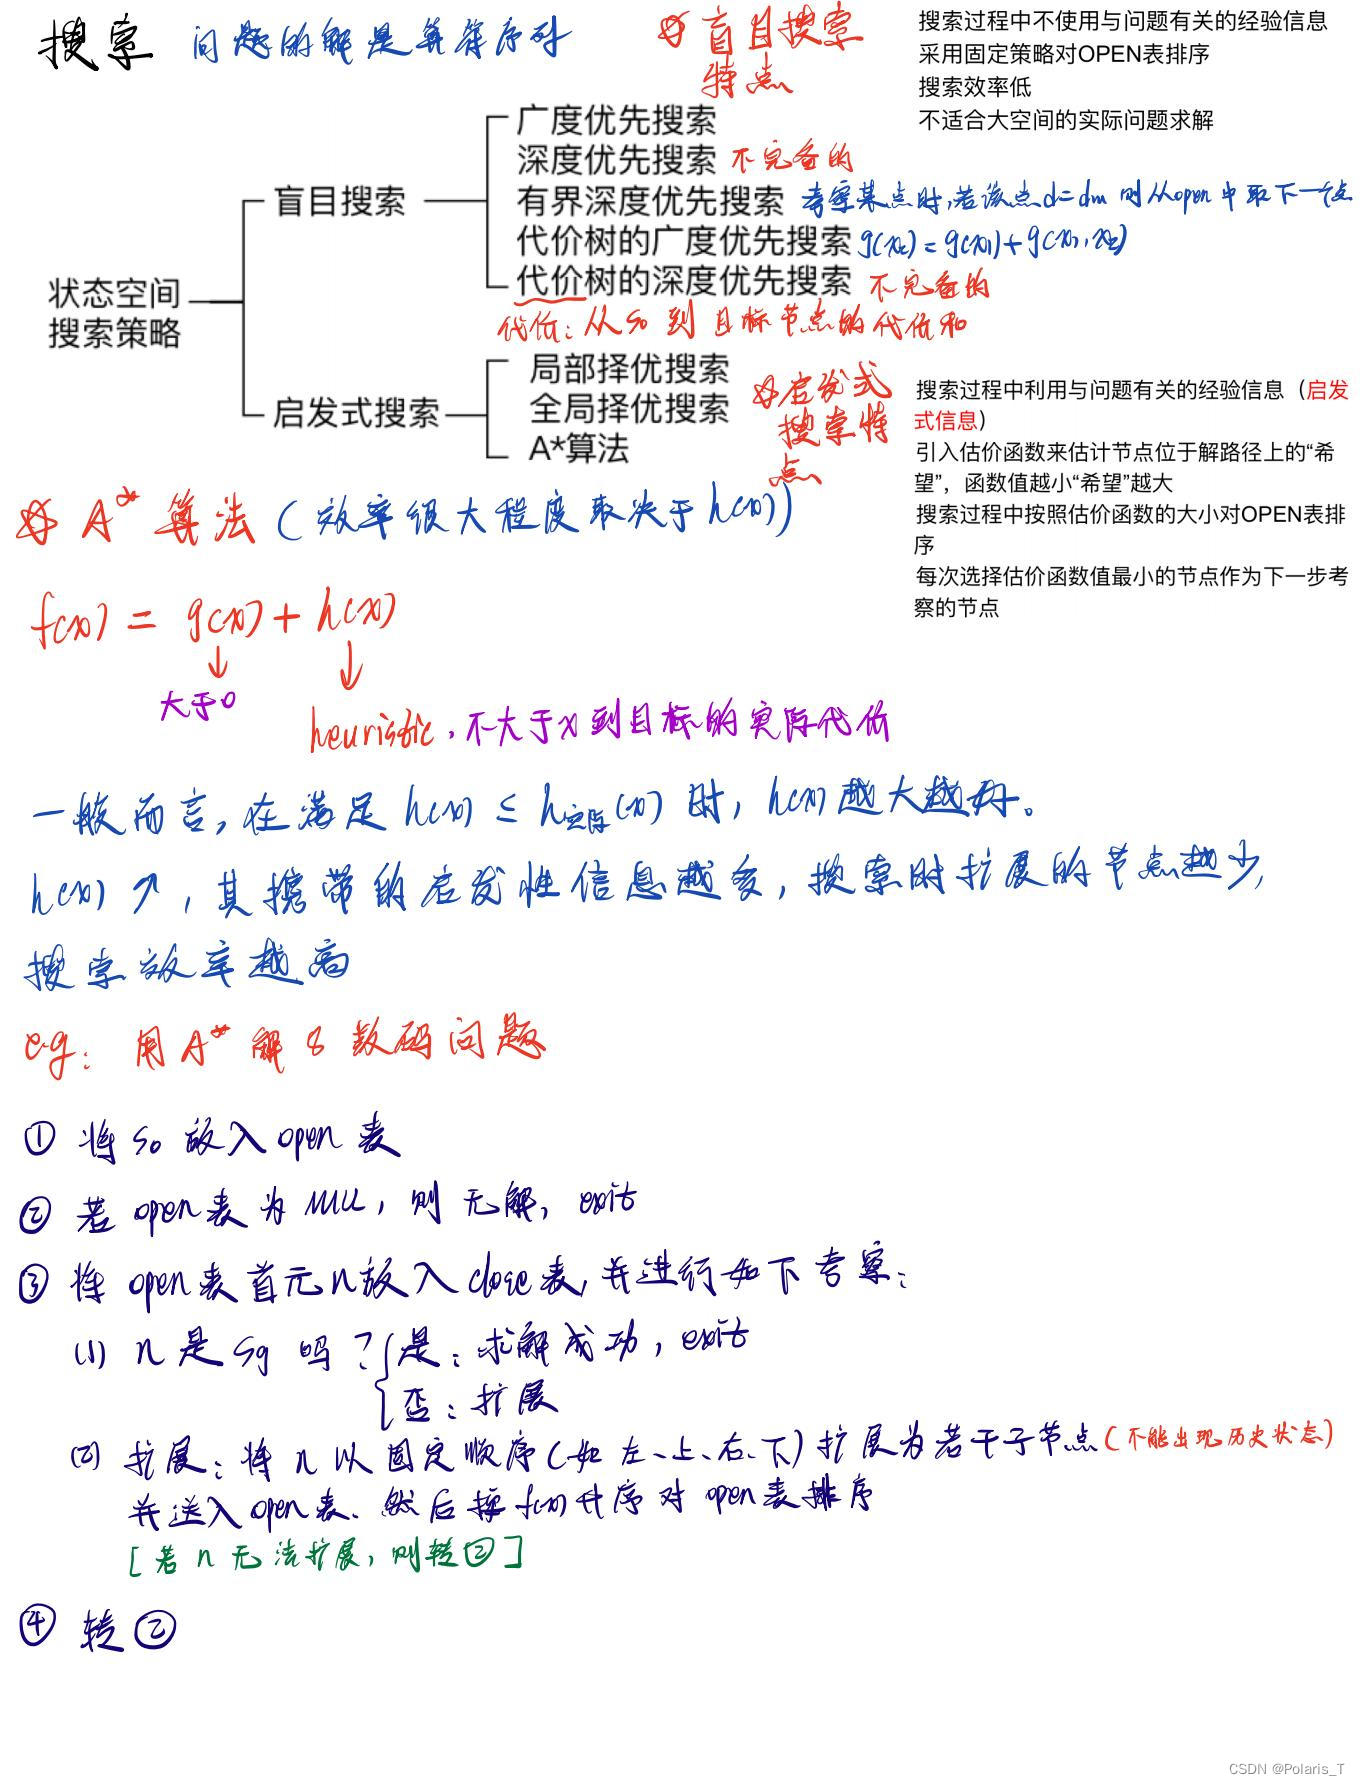 搜索 问题的解是算符序列
☆盲目搜索
特点
搜索过程中不使用与问题有关的经验信息
采用固定策略对OPEN表排序
搜索效率低
不适合大空间的实际问题求解
状态空间
搜索策略
盲目搜索
广度优先搜索
深度优先搜索 不完备的
有界深度优先搜索 考察某点时,若该点d=dm则从open中取下一个点
代价树的广度优先搜索 g(x2)=g(x1)+g(x1,x2)
代价树的深度优先搜索 不完备的
代价:从S0到目标节点的代价和
启发式搜索
局部择优搜索
全局择优搜索
A*算法
☆启发式
搜索特
点
搜索过程中利用与问题有关的经验信息(启发
式信息)
引入估价函数来估计节点位于解路径上的“希
望”,函数值越小“希望”越大
搜索过程中按照估价函数的大小对OPEN表排
序
每次选择估价函数值最小的节点作为下一步考
察的节点
☆ A*算法(效率很大程度取决于h(x))
f(x) = g(x) + h(x)
大于0
heuristic,不大于x到目标的实际代价
一般而言,在满足 h(x) ≤ h实际(x) 时, h(x)越大越好。
h(x)↗,其携带的启发性信息越多,搜索时扩展的节点越少,
搜索效率越高
e.g: 用A*解8数码问题
① 将S0放入open表
② 若open表为NULL,则无解,exit
③ 将open表首元n放入close表,并进行如下考察:
(1) n是Sg吗?{是:求解成功,exit
否:扩展
(2) 扩展:将n以固定顺序(如左、上、右、下)扩展为若干子节点(不能出现历史状态)
并送入open表.然后按f(x)升序对open表排序
[若n无法扩展,则转②]
④ 转②
CSDN @Polaris_T